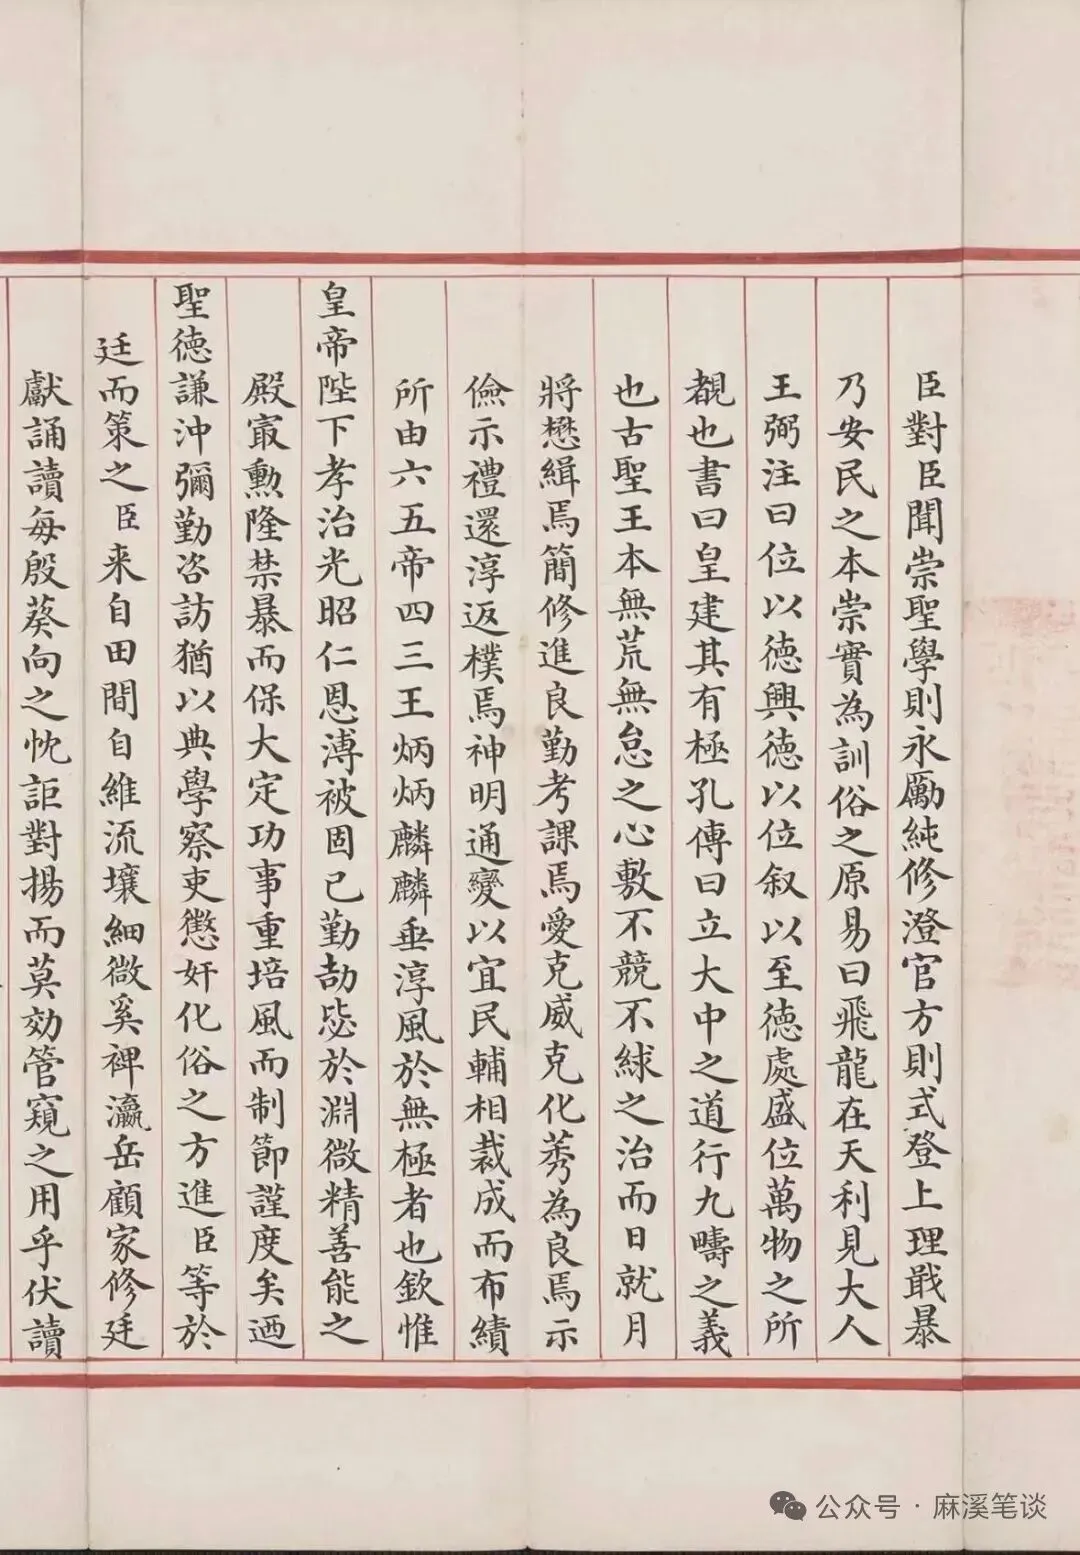 臣對臣聞崇聖學則永勵純修澄官方則式登上理戢暴
乃安民之本崇實為訓俗之原易曰飛龍在天利見大人
王弼注曰位以德興德以位叙以至德處盛位萬物之所
覩也書曰皇建其有極孔傳曰立大中之道行九疇之義
也古聖王本無荒無怠之心敷不競不絿之治而日就月
將懋緝焉簡修進良勤考課焉愛克威克化莠為良焉示
儉示禮還淳返樸焉神明通變以宜民輔相裁成而布績
所由六五帝四三王炳炳麟麟垂淳風於無極者也欽惟
皇帝陛下孝治光昭仁恩溥被固已勤劼毖於淵微精善能之
殿㝡勲隆禁暴而保大定功事重培風而制節謹度矣迺
聖德謙沖彌勤咨訪猶以典學察吏懲奸化俗之方進臣等於
廷而策之臣来自田間自維流壤細微奚裨瀛岳顧家修廷
獻誦讀每殷葵向之忱詎對揚而莫効管窺之用乎伏讀
公众号 · 麻溪笔谈